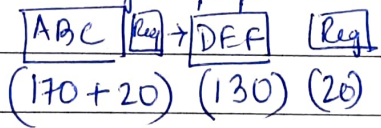 ABC Reg → DEF Reg
(170+20) (130) (20)